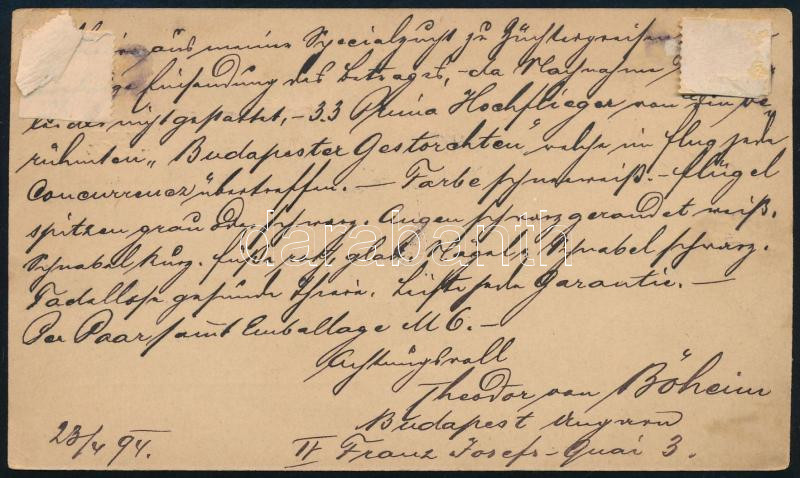 aus meiner Specialzucht zu Züchterpreisen
Einsendung des Betrages, - da Nachnahme
nicht gestattet, - 33 Prima Hochflieger von den be-
rühmten „Budapester Gestorchten" welche im Flug jede
Concurrenz übertreffen. — Farbe schneeweiß. - Flügel
spitzen grau oder schwarz. Augen schwarzgerandet weiß.
Schnabel kurz. Füße roth, glatt. Nägel & Schnabel schwarz.
Tadellose gesunde Thiere. Leiste jede Garantie. —
Per Paar sammt Emballage M 6. —
Achtungsvoll
Theodor von Böheim
Budapest Ungarn
23/4 94. II Franz Josefs-Quai 3.
darabanth